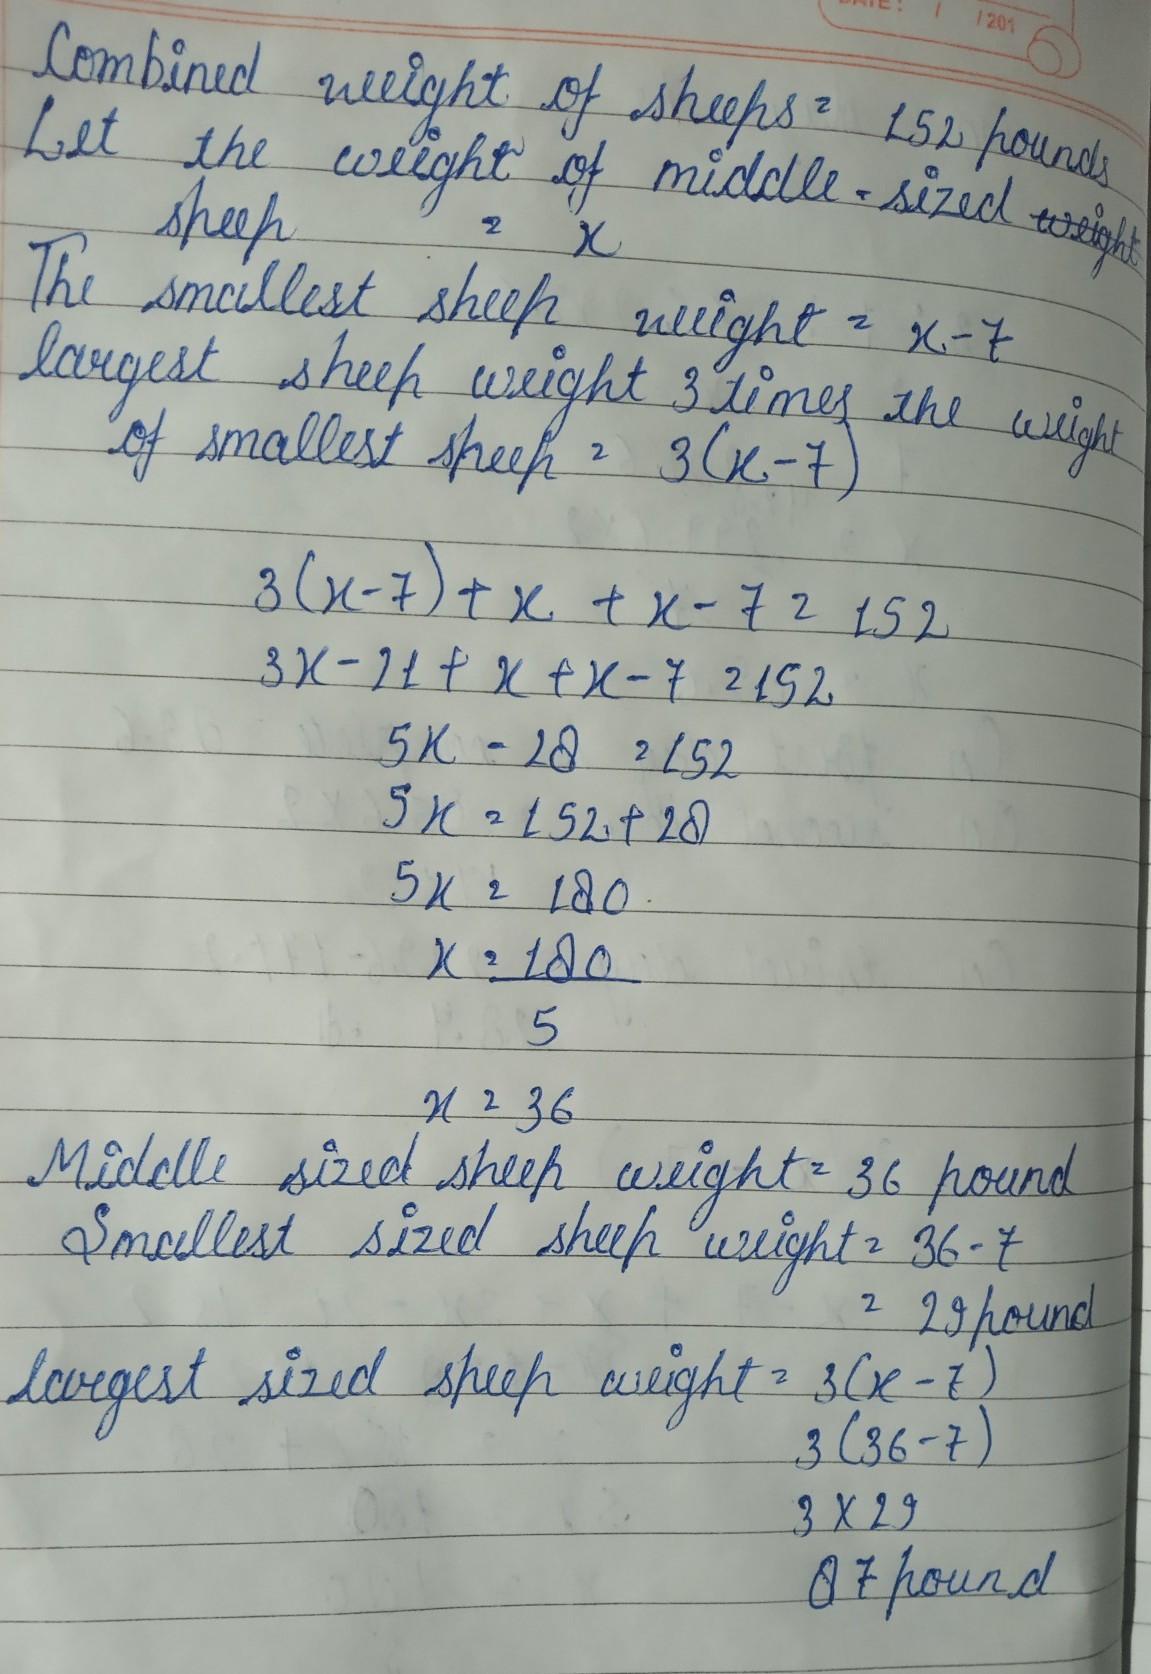 DATE: / /201
Combined weight of sheeps = 152 pounds
Let the weight of middle-sized weight
sheep = x
The smallest sheep weight = x-7
largest sheep weight 3 times the weight
of smallest sheep = 3(x-7)
3(x-7)+x + x-7 = 152
3x-21+ x +x-7 =152
5x - 28 =152
5x = 152+28
5x = 180
x = 180
5
x = 36
Middle sized sheep weight = 36 pound
Smallest sized sheep weight = 36-7
= 29 pound
largest sized sheep weight = 3(x-7)
3(36-7)
3 x 29
87 pound